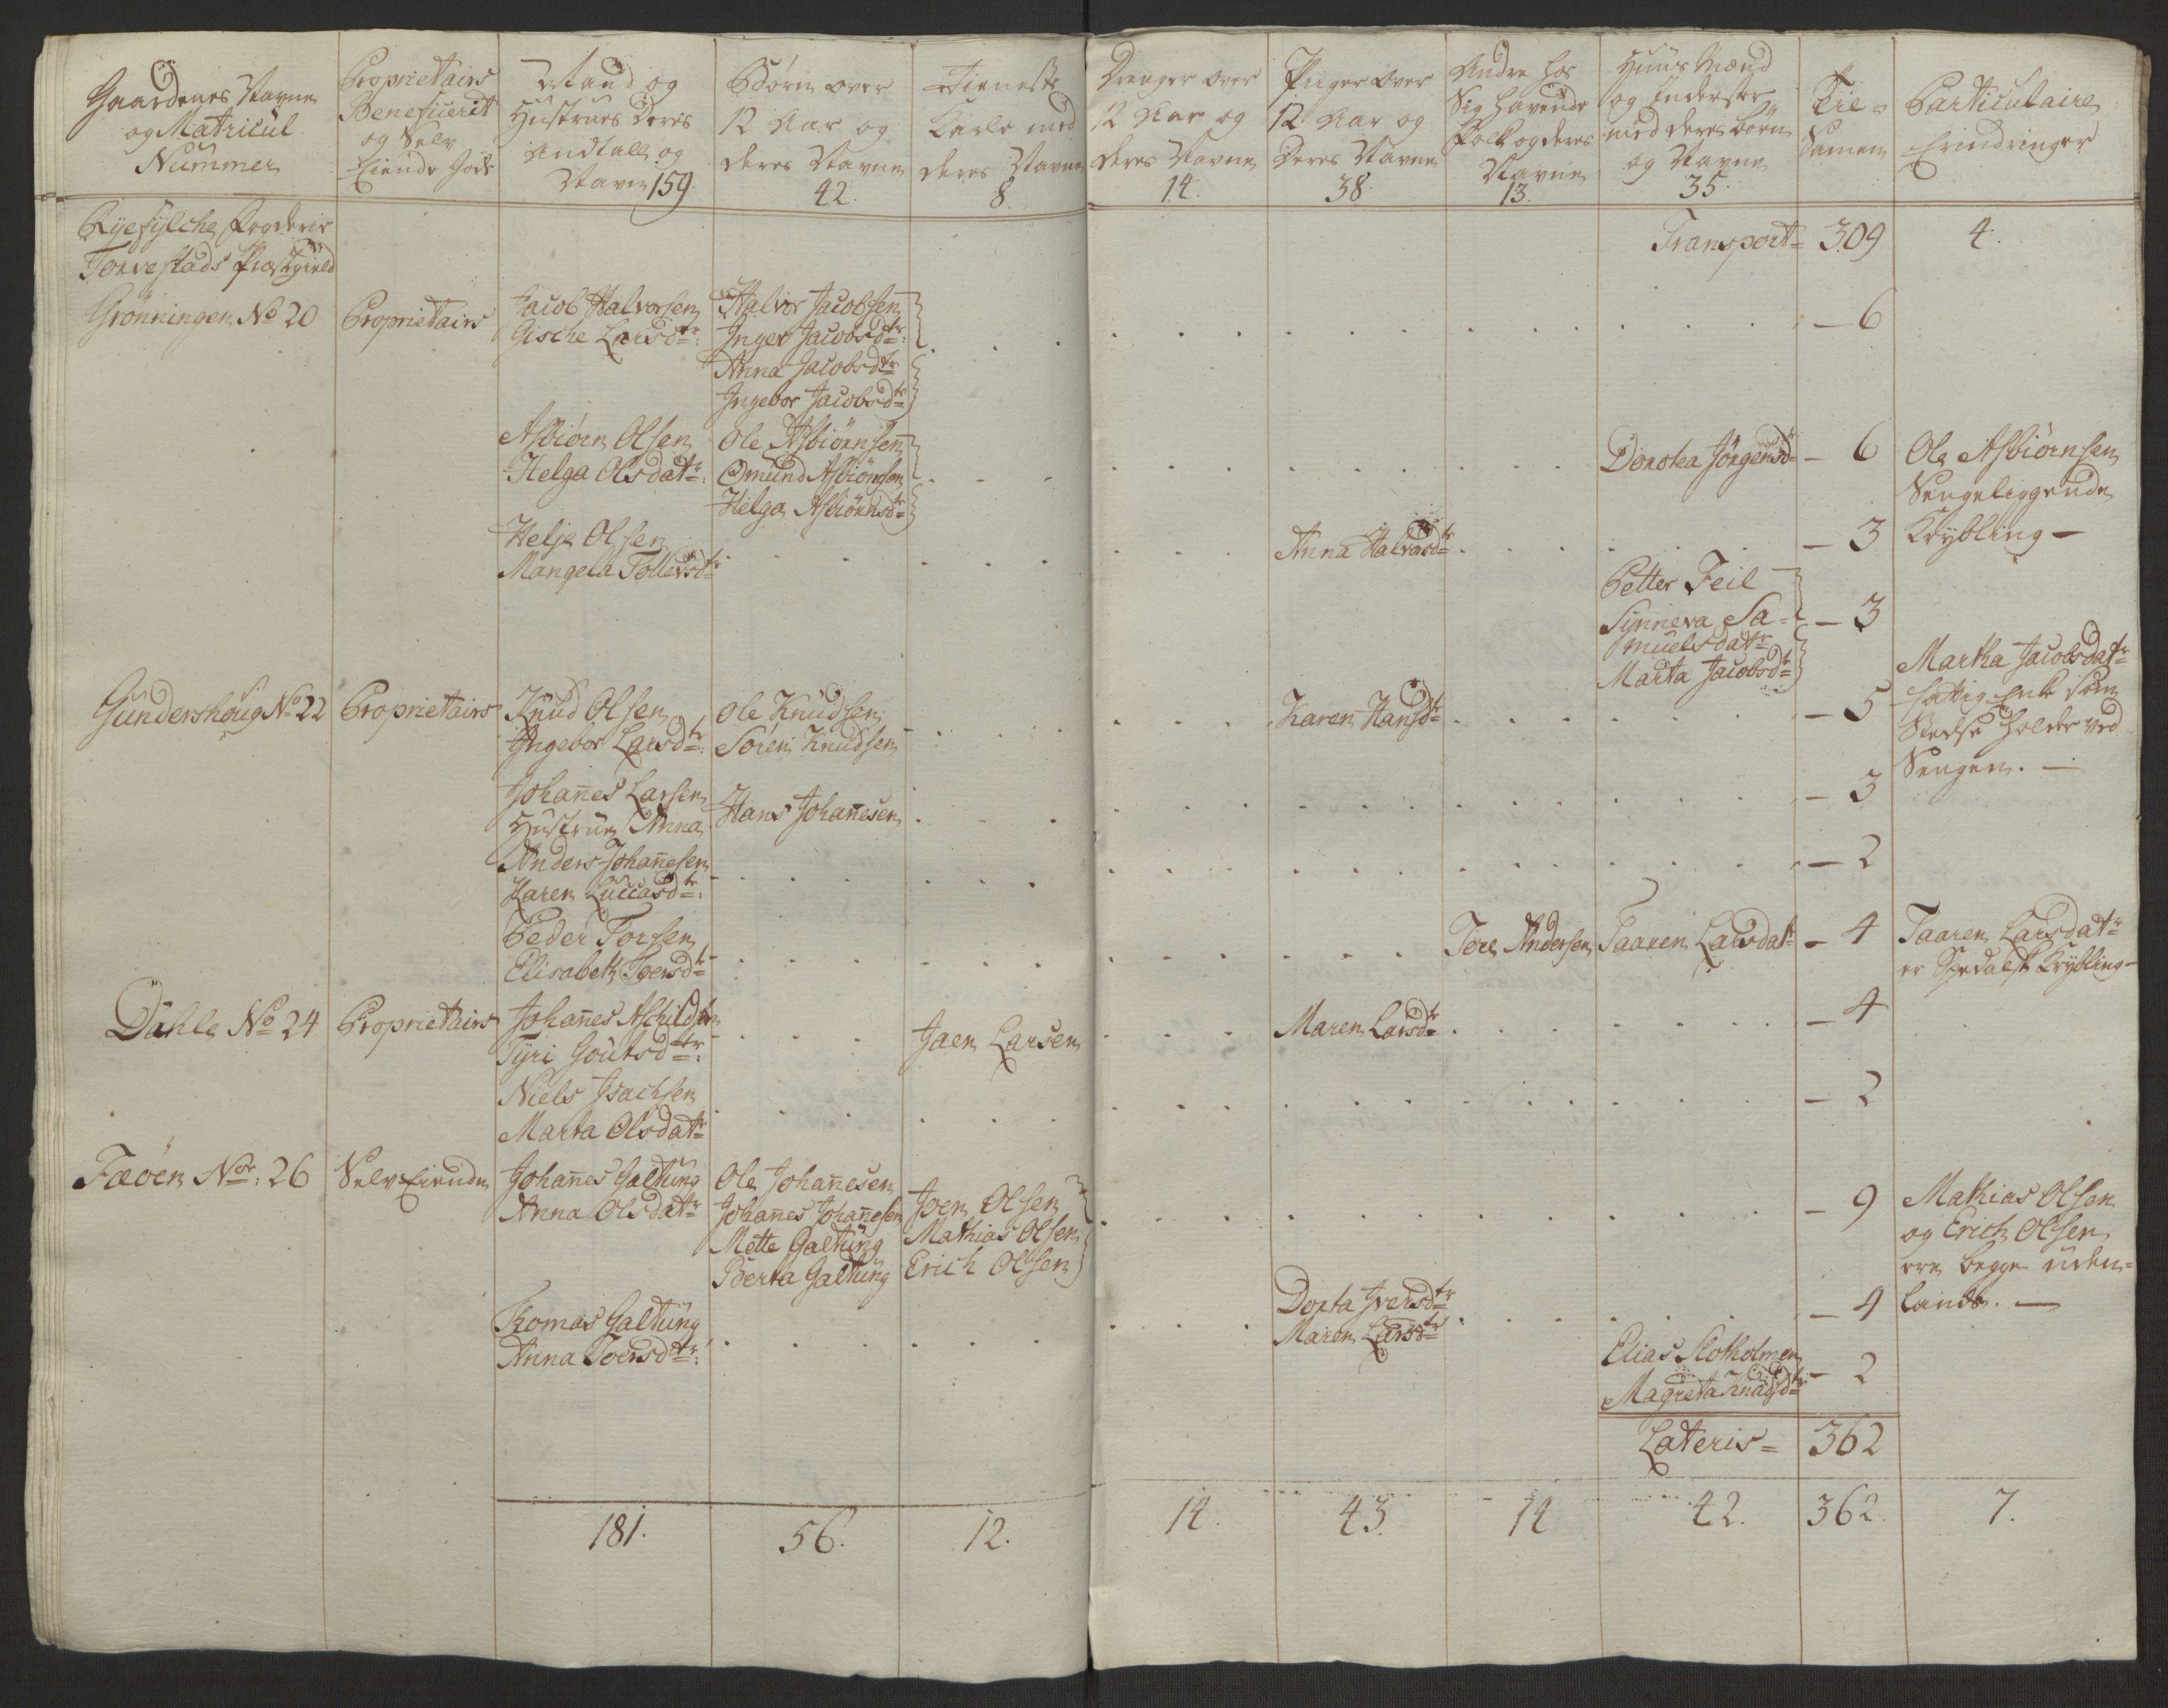 Gaardenes Navne
og Matricul
Nummer
Proprietairs
Beneficerit
og Selv
Eiende Gods
Mand og
Hustrues Deres
Andtall og
Navne 159.
Børn over
12 Aar og
deres Navne
42.
Tieneste
Karle med
deres Navne
8.
Drenger over
12 Aar og
deres Navne
14.
Piger over
12 Aar og
Deres Navne
38.
Andre hos
Sig havende
Folk og deres
Navne
13.
Huus Mænd
og Inderster
med deres børn
og Navne
35.
Tie-
Samen
Particulaire
Erindringer
Ryefylche Fogderie
Torvestads Præstegield
Transport = 309
4.
Grønningen No 20
Proprietairs
Jacob Halvorsen
Gische Larsdtr:
Halvor Jacobsen
Inger Jacobsdtr:
Anna Jacobsdtr
Ingebor Jacobsdtr
- 6
Asbiørn Olsen
Helga Olsdatr:
Ole Asbiørnsen
Omund Asbiørnsen
Helga Asbiørnsdtr
Dorotea Jörgensdtr
- 6
Ole Asbiørnsen
Sengeliggende
Krybling -
Helje Olsen
Mangela Tollevsdtr
Anna Halvorsdtr
- 3
Petter Feil
Synneva Sa=
muelsdatr
Marta Jacobsdtr
- 3
Martha Jacobsdatr
fattig Enke som
Stedse holder ved
Sengen. -
Gundershoug No 22
Proprietairs
Knud Olsen
Ingebor Larsdtr:
Ole Knudsen
Søren Knudsen
Karen Hansdtr
- 5
Johannes Larsen
Hustrue Anna
Hans Johannesen
- 3
Anders Johannesen
Karen Luccasdtr:
- 2
Peder Torsen
Elisabeth Toersdtr
Tore Andersen
Taaren Larsdatr
- 4
Taaren Larsdatr
er Spedalsk Krybling -
Dahle No 24
Proprietairs
Johannes Aschildsen
Tyri Goutsdtr:
Jaen Larsen
Maren Larsdtr
- 4
Niels Isachsen
Marta Olsdatr
- 2
Fæøen No: 26
Selv Eiende
Johannes Galtung
Anna Olsdatr
Ole Johannesen
Johannes Johannesen
Mette Galtung
Berta Galtung
Joen Olsen
Mathias Olsen
Erich Olsen
- 9
Mathias Olsen
og Erich Olsen
ere begge uden=
lands. -
Thomas Galtung
Anna Toersdtr:
Dorta Iversdtr
Maren Larsdtr
- 4
Elias Slotholmen
Magreta Knudsdtr
- 2
Lateris = 362
181.
56.
12.
14.
43.
14
42.
362.
7.